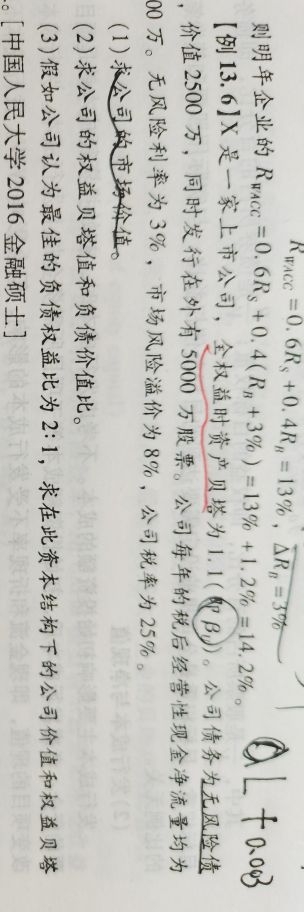 R_WACC = 0.6R_S + 0.4R_B = 13%, ΔR_B = 3%
则明年企业的 R_WACC = 0.6R_S + 0.4(R_B + 3%) = 13% + 1.2% = 14.2%。
【例 13.6】X 是一家上市公司，全权益时资产贝塔为 1.1(即 β₀)。公司债务为无风险债
，价值 2500 万，同时发行在外有 5000 万股票。公司每年的税后经营性现金净流量均为
00 万。无风险利率为 3%，市场风险溢价为 8%，公司税率为 25%。
(1)求公司的市场价值。
(2)求公司的权益贝塔值和负债价值比。
(3)假如公司认为最佳的负债权益比为 2:1，求在此资本结构下的公司价值和权益贝塔
。[中国人民大学 2016 金融硕士]